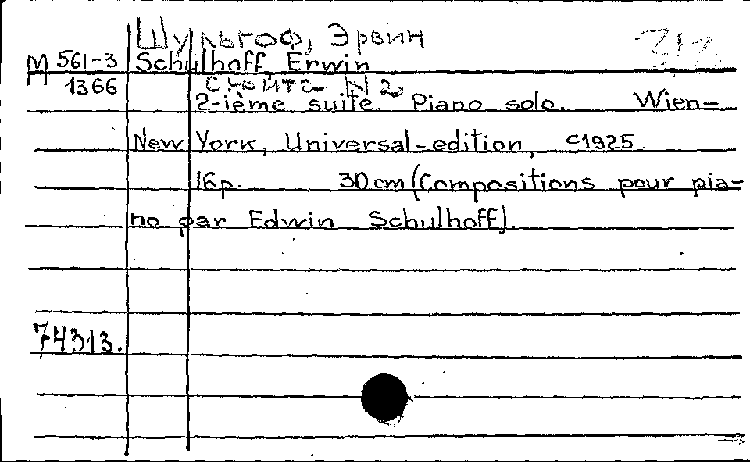 Шульгоф, Эрвин
M 561-3 Schulhoff Erwin
1366 Сюита N 2
2-ième suite. Piano solo. Wien-
New York, Universal-edition, c1925
16p. 30cm (Compositions pour pia-
no par Edwin Schulhoff).
74313.